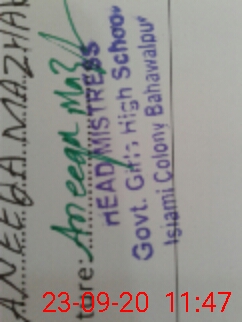 ANEEQA MAZHAR
ture: Aneeqa Maz
HEADMISTRESS
Govt. Girls High School
Islami Colony Bahawalpur
23-09-20 11:47